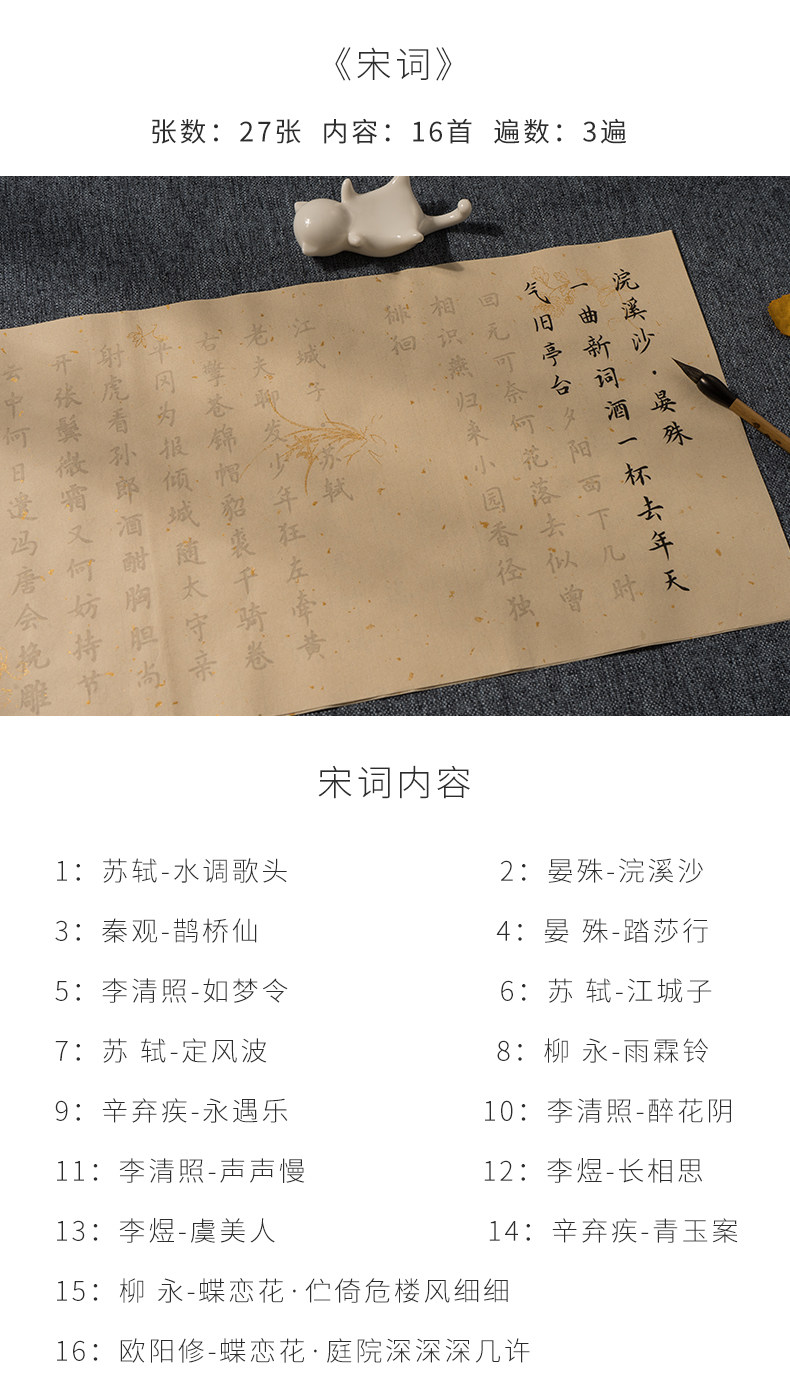 《宋词》
张数：27张 内容：16首 遍数：3遍
浣溪沙·晏殊
一曲新词酒一杯去年天
气旧亭台夕阳西下几时
回无可奈何花落去似曾
相识燕归来小园香径独
徘徊
江城子·苏轼
老夫聊发少年狂左牵黄
右擎苍锦帽貂裘千骑卷
平冈为报倾城随太守亲
射虎看孙郎酒酣胸胆尚
开张鬓微霜又何妨持节
云中何日遣冯唐会挽雕
宋词内容
1：苏轼-水调歌头
2：晏殊-浣溪沙
3：秦观-鹊桥仙
4：晏 殊-踏莎行
5：李清照-如梦令
6：苏 轼-江城子
7：苏 轼-定风波
8：柳 永-雨霖铃
9：辛弃疾-永遇乐
10：李清照-醉花阴
11：李清照-声声慢
12：李煜-长相思
13：李煜-虞美人
14：辛弃疾-青玉案
15：柳 永-蝶恋花·伫倚危楼风细细
16：欧阳修-蝶恋花·庭院深深深几许